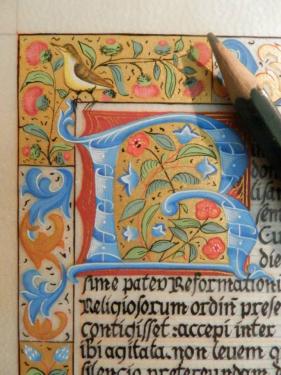 R
in
don
lisar
sem
Cu
die
sime pater Reformationi
Religiosorum ordin prese
contigisset: accepi inter
ibi agitata. non leuem q
silencio pretereundam